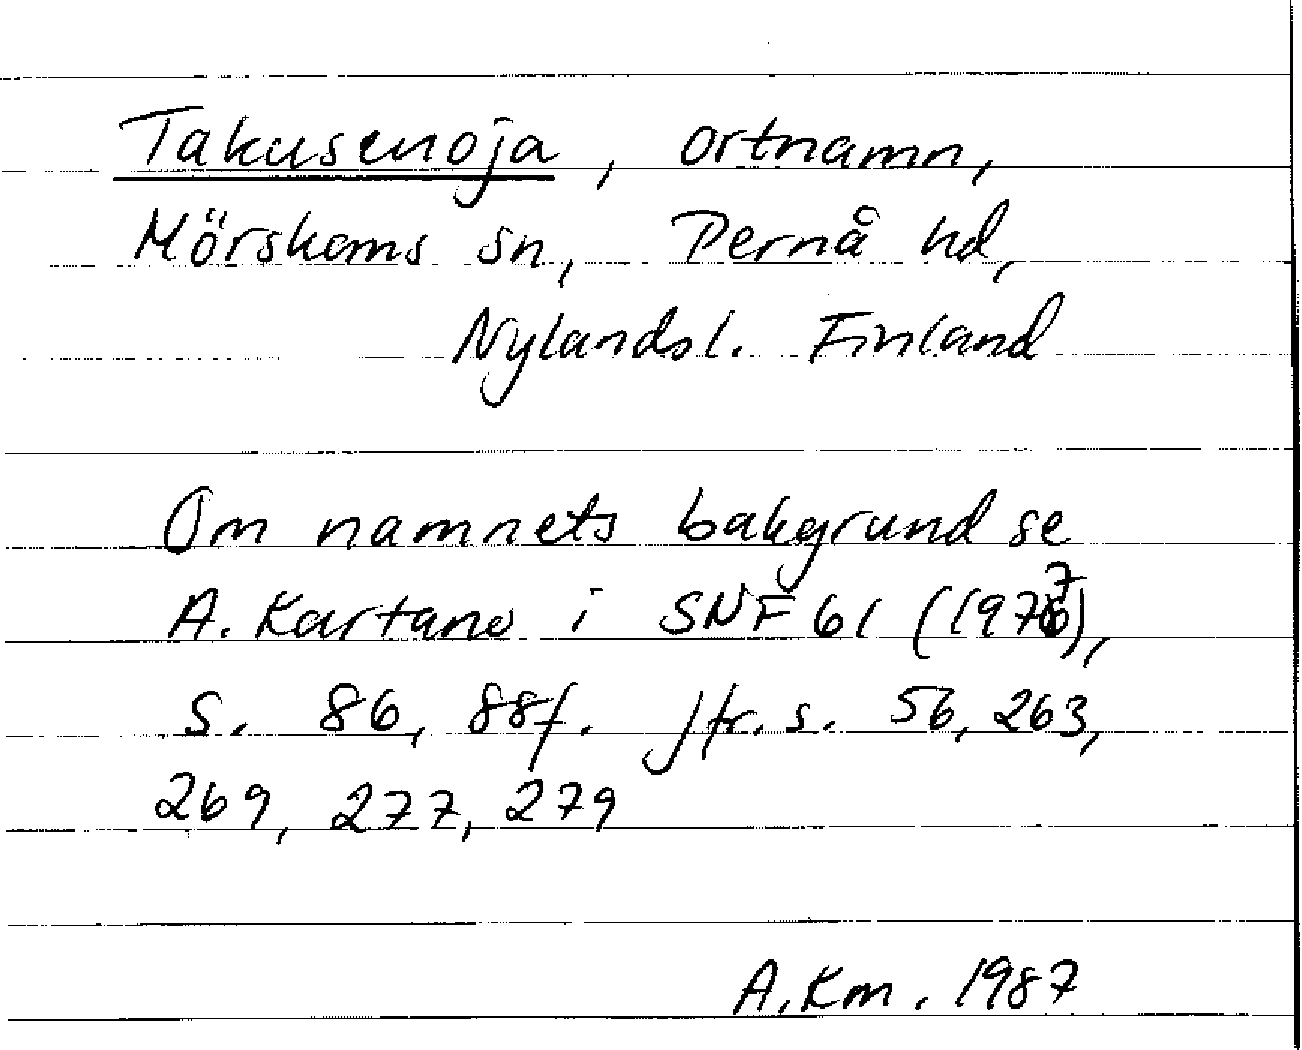 Takusenoja, ortnamn,
Mörskoms sn, Pernå hd,
Nylandsl. Finland
Om namnets bakgrund se
A. Kartano i SNF 61 (1977),
s. 86, 88f. Jfr. s. 56, 263,
269, 277, 279
A. Km. 1987